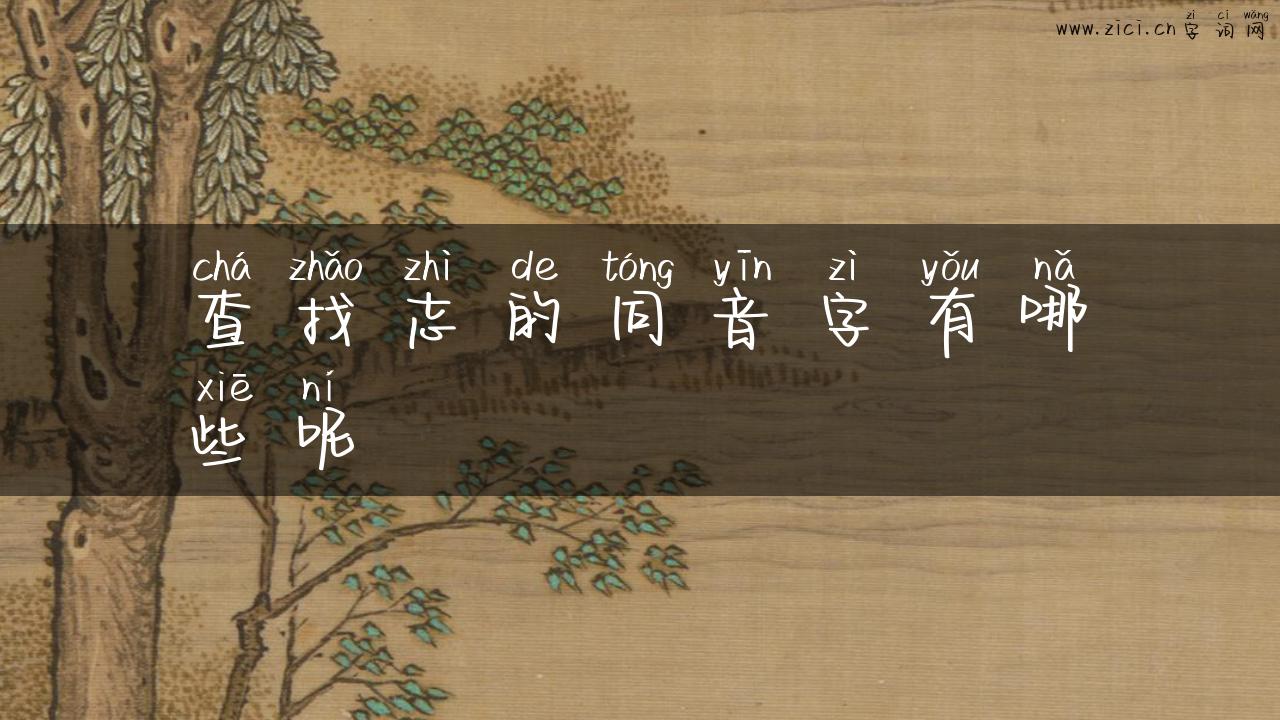 zì cí wǎng
www.zici.cn 字 词 网
chá zhǎo zhì de tóng yīn zì yǒu nǎ
查 找 志 的 同 音 字 有 哪
xiē ní
些 呢